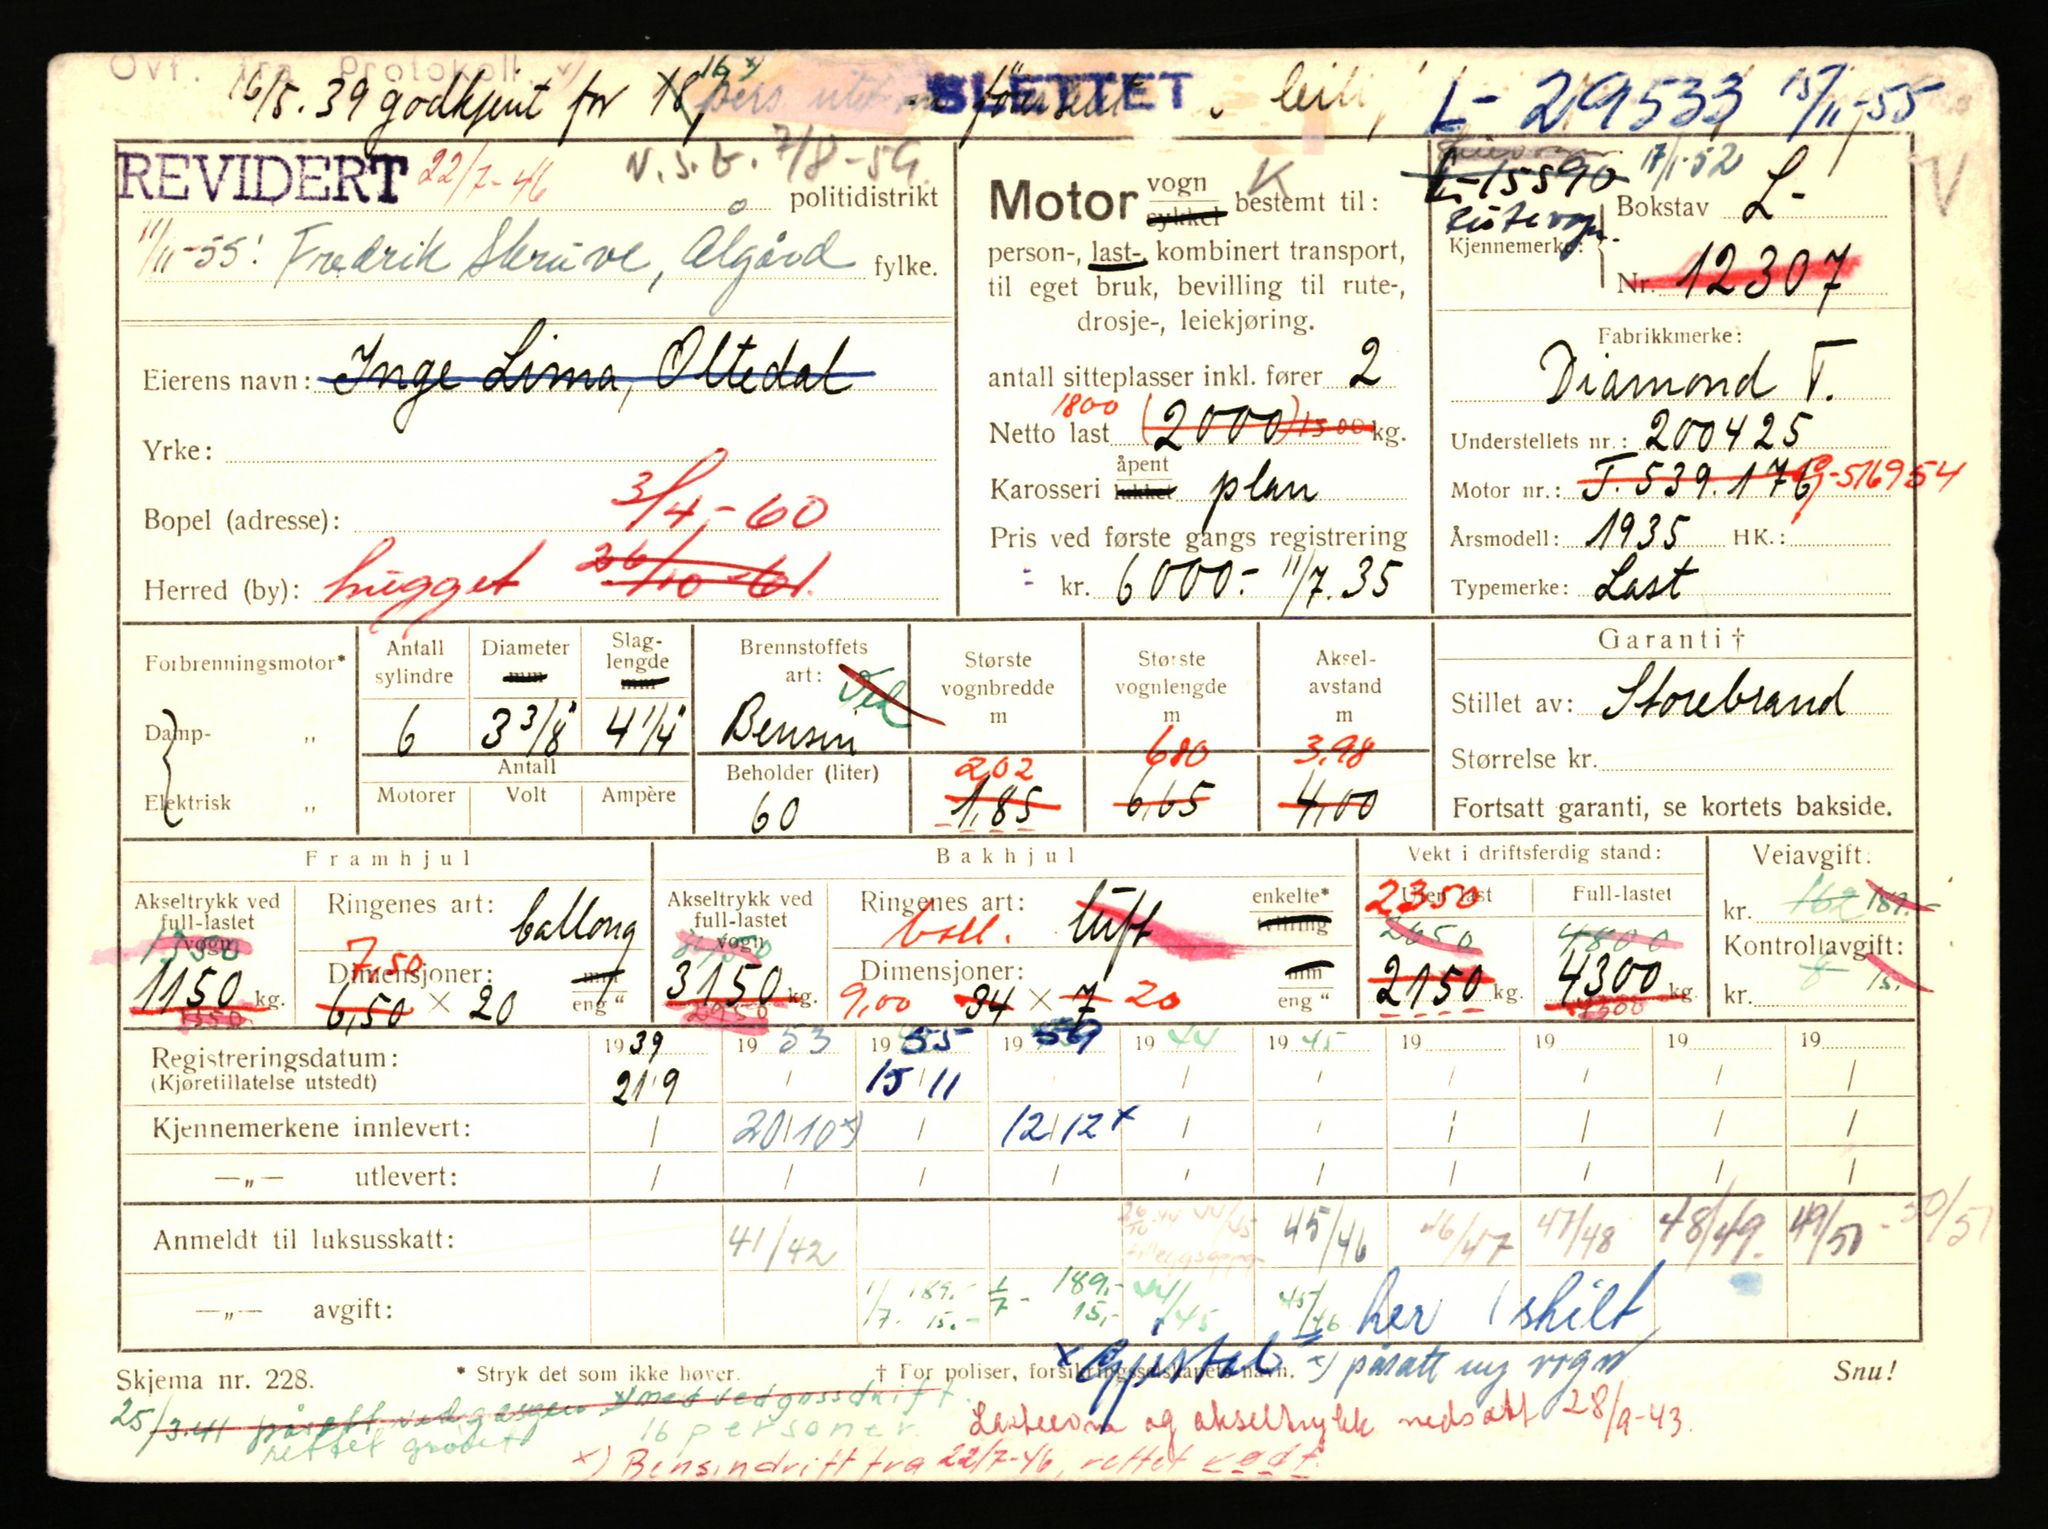 Ovf. fra Protokoll
16/5.39 godkjent for 18 pers
16 x)
SLETTET
L-29533 15/11-55
REVIDERT 22/7-46
N.S.B. 7/8-59.
politidistrikt
11/11-55: Fredrik Skruve, Ålgård fylke.
Eierens navn: Inge Lima, Oltedal
Yrke:
Bopel (adresse): 3/4-60
Herred (by): hugget 26/10-61.
K
Motor vogn sykkel bestemt til:
person-, last-, kombinert transport,
til eget bruk, bevilling til rute-,
drosje-, leiekjøring.
antall sitteplasser inkl. fører 2
1800
Netto last (2000) 1500 kg.
Karosseri åpent lukket plan
Pris ved første gangs registrering
kr. 6000.- 11/7.35
L-15590 17/1-52
Bokstav L-
Kjennemerke:
Nr. 12307
Fabrikkmerke:
Diamond T.
Understellets nr.: 200425
Motor nr.: T.539.176 G-516954
Årsmodell: 1935 HK.:
Typemerke: Last
Forbrenningsmotor*
Damp- „
Elektrisk „
Antall sylindre
6
Diameter mm
3 3/8"
Slaglengde mm
4 1/4"
Antall
Motorer Volt Ampère
Brennstoffets art: Ved
Bensin
Beholder (liter)
60
Største vognbredde m
2,02
1,85
Største vognlengde m
6,80
6,65
Akselavstand m
3,98
4,00
Garanti †
Stillet av: Storebrand
Størrelse kr.
Fortsatt garanti, se kortets bakside.
Framhjul
Akseltrykk ved full-lastet vogn
1150 kg.
Ringenes art: ballong
7,50
Dimensjoner: mm
6,50 × 20 eng "
Bakhjul
Akseltrykk ved full-lastet vogn
3150 kg.
2950
Ringenes art: ball. luft enkelte* tvilling
Dimensjoner: mm
9,00 34 × 7 20 eng "
Vekt i driftsferdig stand:
Uten last
2350
2050
2150 kg.
Full-lastet
4800
4300 kg.
Veiavgift:
kr. 162 189.-
Kontrollavgift:
kr. 8 15.
Registreringsdatum: 1939 1953 1955 1959 1944 1945 19 19 19 19
(Kjøretillatelse utstedt) 21/9 / 15/11 / / / / / / /
Kjennemerkene innlevert: / 20/10 x) / 12/12 x / / / / / /
—„— utlevert: / / / / / / / / / /
Anmeldt til luksusskatt: 41/42 44/45 45/46 46/47 47/48 48/49. 49/50 - 50/51
—„— avgift: 1/7. 189.- 15.- 1/7- 189.- 15,- 44/45 45/46 her 1 skilt
Skjema nr. 228. * Stryk det som ikke høver. † For poliser, forsikringsselskapets navn. Snu!
x Gjestal x) påsatt ny vogn
25/3.41 påsatt vedgassgen x) med vedgassdrift.
16 personer
akseltrykk nedsatt 28/9-43.
x) Bensindrift fra 22/7-46, rettet